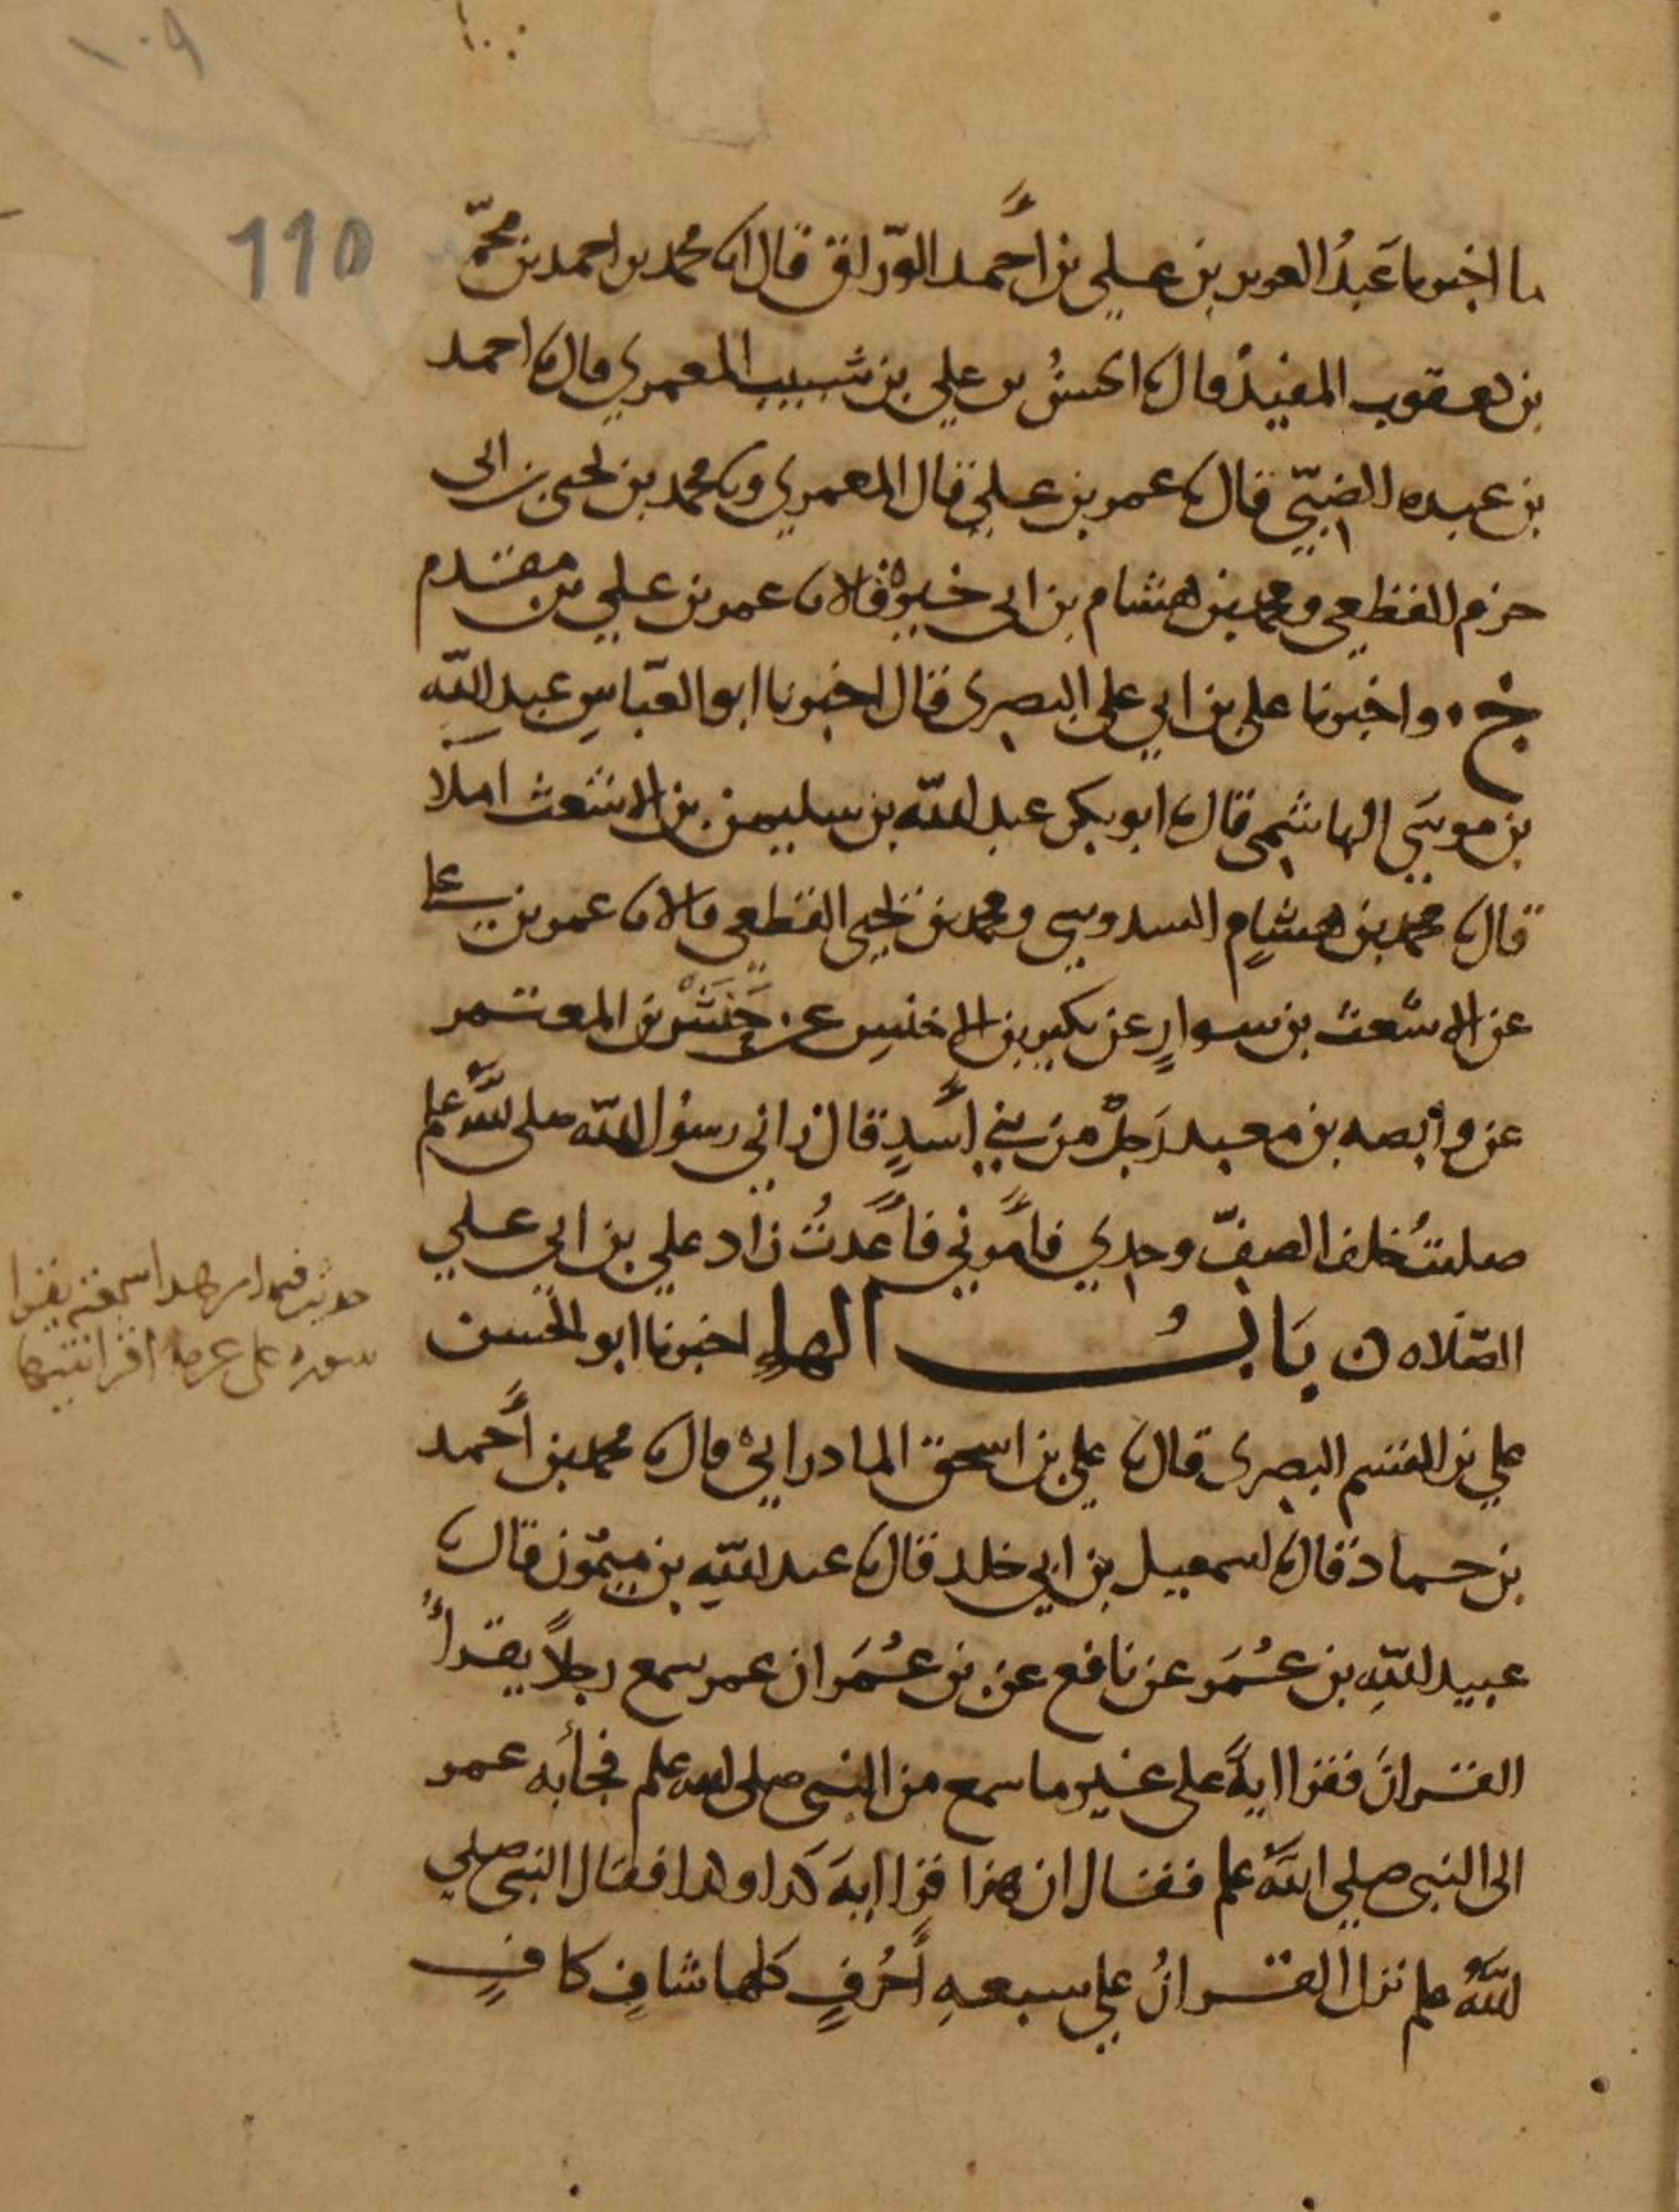 ١٠٩
110
ما اخبرنا عَبدُ العزيز بن علي بن أحمد الورّاق قال انا محمد بن احمد بن محمّد
بن يعقوب المفيدُ قال نا الحسنُ بن علي بن شبيب المعمري قال نا احمد
بن عبده الضبّي قال نا عمر بن علي قال المعمري ونا محمد بن يحيى بن ابى
حزم القطعي ومحمد بن هشام بن ابي خيرة قالا نا عمر بن علي بن مقدم
ح . واخبرنا علي بن ابي علي البصرى قال اخبرنا ابو العبّاسِ عبد اللّهِ
بن موسَي الهاشمي قال نا ابو بكر عبد اللّه بن سليمن بن الاشعث املا
قال نا محمد بن هشامٍ السدوسي ومحمد بن يحيى القطعي قالا نا عمر بن علي
عن الاشعث بن سوارٍ عن بكير بن الاخنسِ عن حَنَشْ بن المعتمر
عن وابصه بن معبد رَجلٌ من بني أسدٍ قال راني رسولُ اللّه صلى اللّه علم
صليتُ خلف الصفّ وحدي فأمرني فأعدتُ زاد علي بن ابي علي
الصّلاه ن بَابُ الهاءِ اخبرنا ابو الحسن
علي بن القسم البصرى قال نا علي بن اسحق المادرائي قال نا محمد بن أحمد
بن حماد قال نا اسمعيل بن ابي خلد قال نا عبد اللّهِ بن ميمُون قال نا
عبيد اللّهِ بن عُمَر عن نافع عن بن عُمَر ان عمر سمع رجلاً يقرأُ
القرانَ فقرا ايةً على غير ما سمع من النبى صلى الله علم فجأ به عمر
الى النبى صلي اللّهُ علم فقال ان هذا قرا ايهَ كذا وكذا فقال النبى صلي
اللّهُ علم نزل القرانُ علي سبعهِ أحرُفٍ كلها شافٍ كافٍ